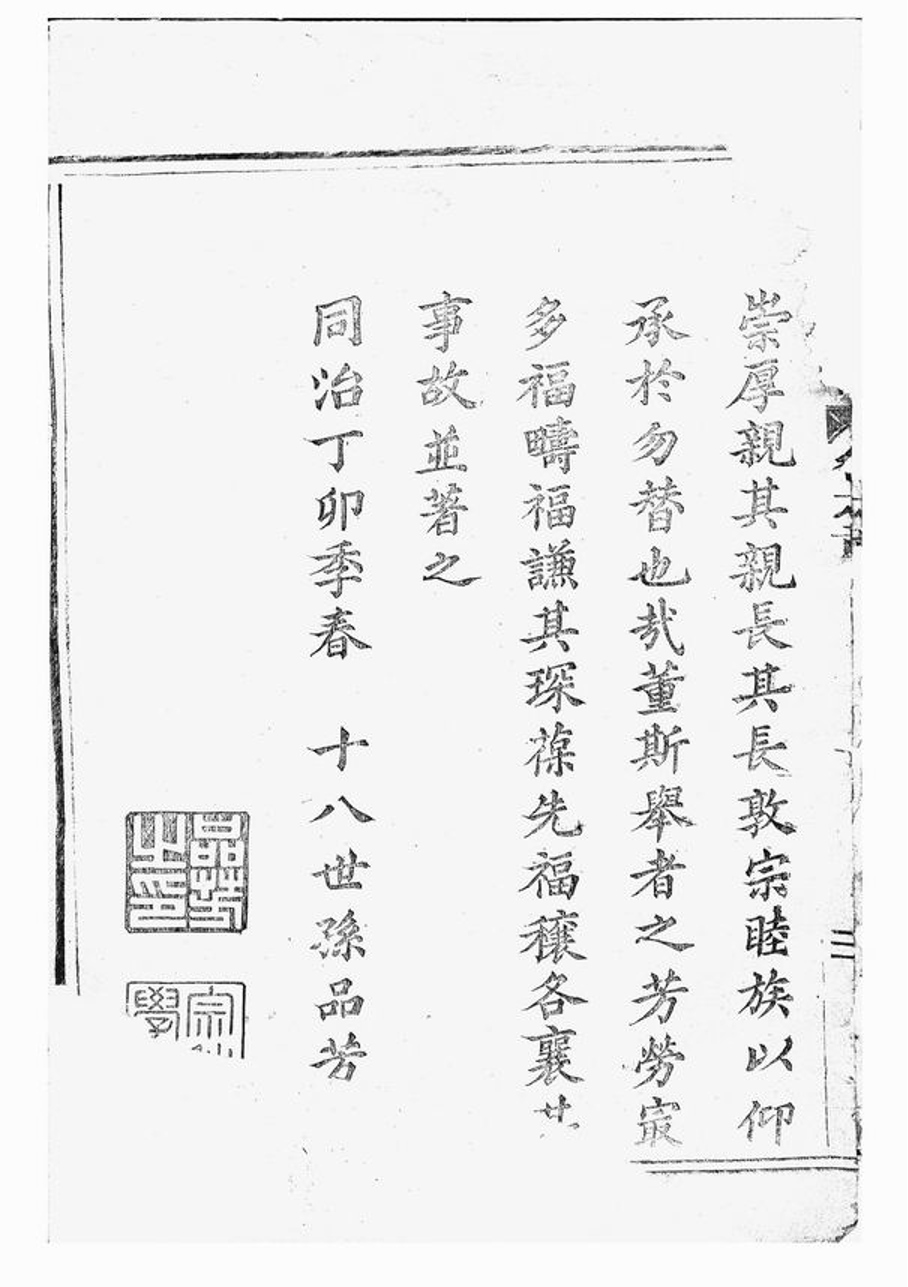 崇厚親其親長其長敦宗睦族以仰
承於勿替也哉董斯舉者之芳勞㝡
多福疇福謙其琛葆先福穰各襄
事故並著之
同治丁卯季春 十八世孫品芳
品芳之印
二